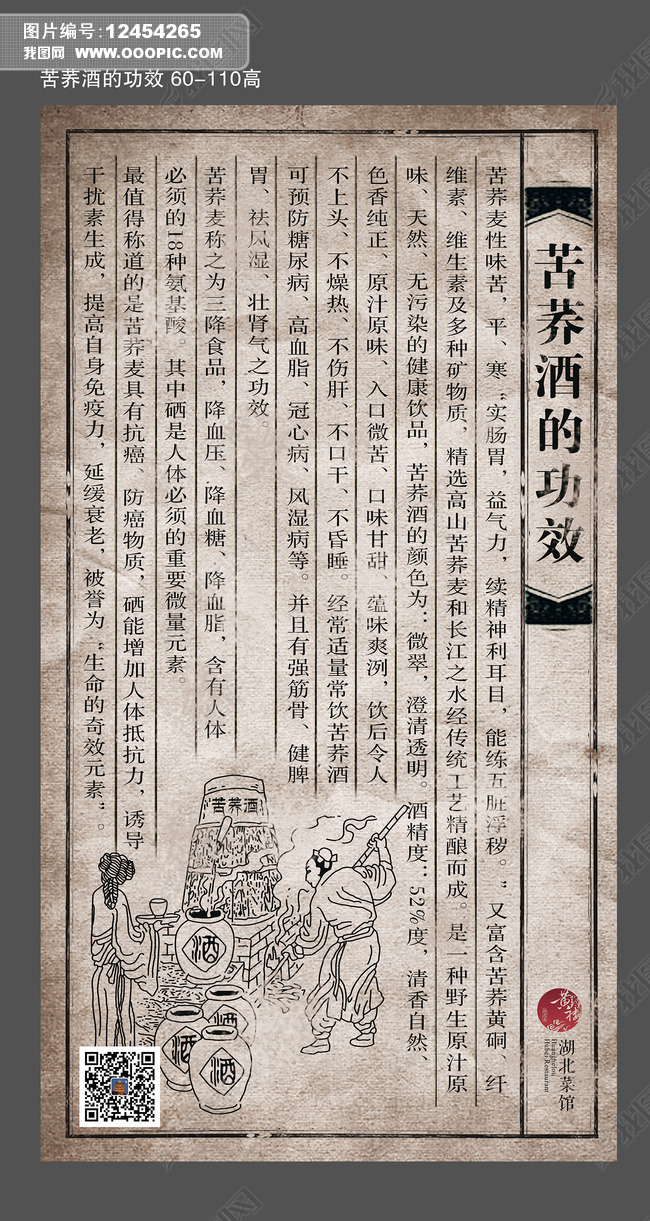 图片编号:12454265
我图网 WWW.OOOPIC.COM
苦荞酒的功效 60-110高
苦荞酒的功效
苦荞麦性味苦，平、寒“实肠胃，益气力，续精神利耳目，能练五脏浮秽。“又富含苦荞黄硐、纤
维素、维生素及多种矿物质，精选高山苦荞麦和长江之水经传统工艺精酿而成。是一种野生原汁原
味、天然、无污染的健康饮品，苦荞酒的颜色为：微翠，澄清透明。酒精度：52%度，清香自然、
色香纯正、原汁原味、入口微苦、口味甘甜、蕴味爽洌，饮后令人
不上头、不燥热、不伤肝、不口干、不昏睡。经常适量常饮苦荞酒
可预防糖尿病、高血脂、冠心病、风湿病等。并且有强筋骨、健脾
胃、祛风湿、壮肾气之功效。
苦荞麦称之为三降食品，降血压、降血糖、降血脂，含有人体
必须的18种氨基酸。其中硒是人体必须的重要微量元素。
最值得称道的是苦荞麦具有抗癌、防癌物质，硒能增加人体抵抗力，诱导
干扰素生成，提高自身免疫力，延缓衰老，被誉为“生命的奇效元素”。
苦荞酒
酒
酒
酒
酒
湖北菜馆
Huanghelou
Hubei Restaurant